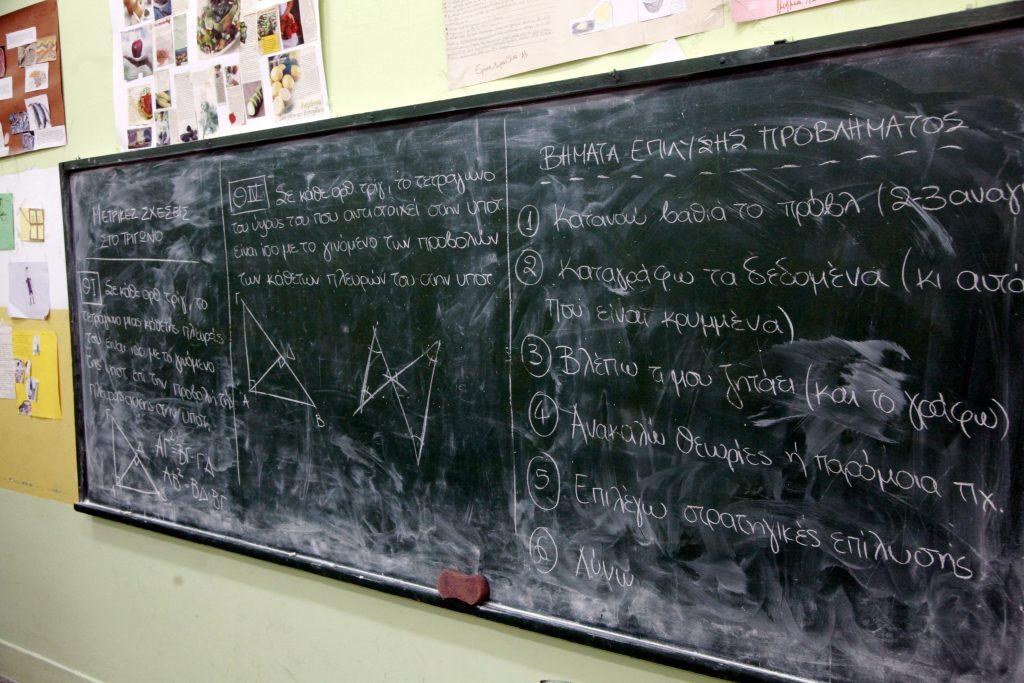 ΜΕΤΡΙΚΕΣ ΣΧΕΣΕΙΣ
ΣΤΟ ΤΡΙΓΩΝΟ
ΘΙ Σε κάθε ορθ τριγ, το
τετράγωνο μιας κάθετης πλευράς
του είναι ίσο με το γινόμενο
της υποτ. επί την προβολή της
πλευράς στην υποτ.
ΑΓ² = ΒΓ·ΓΔ
ΑΒ² = ΒΔ·ΒΓ
ΘΙΙ Σε κάθε ορθ. τριγ. το τετράγωνο
του ύψους του που αντιστοιχεί στην υποτ
είναι ίσο με το γινόμενο των προβολών
των καθέτων πλευρών του στην υποτ
Γ
Α
Β
ΒΗΜΑΤΑ ΕΠΙΛΥΣΗΣ ΠΡΟΒΛΗΜΑΤΟΣ
1 Κατανοώ βαθιά το πρόβλ (2-3 αναγ
2 Καταγράφω τα δεδομένα (κι αυτά
που είναι κρυμμένα)
3 Βλέπω τι μου ζητάει (και το γράφω)
4 Ανακαλώ θεωρίες ή παρόμοια πχ.
5 Επιλέγω στρατηγικές επίλωσης
6 Λύνω